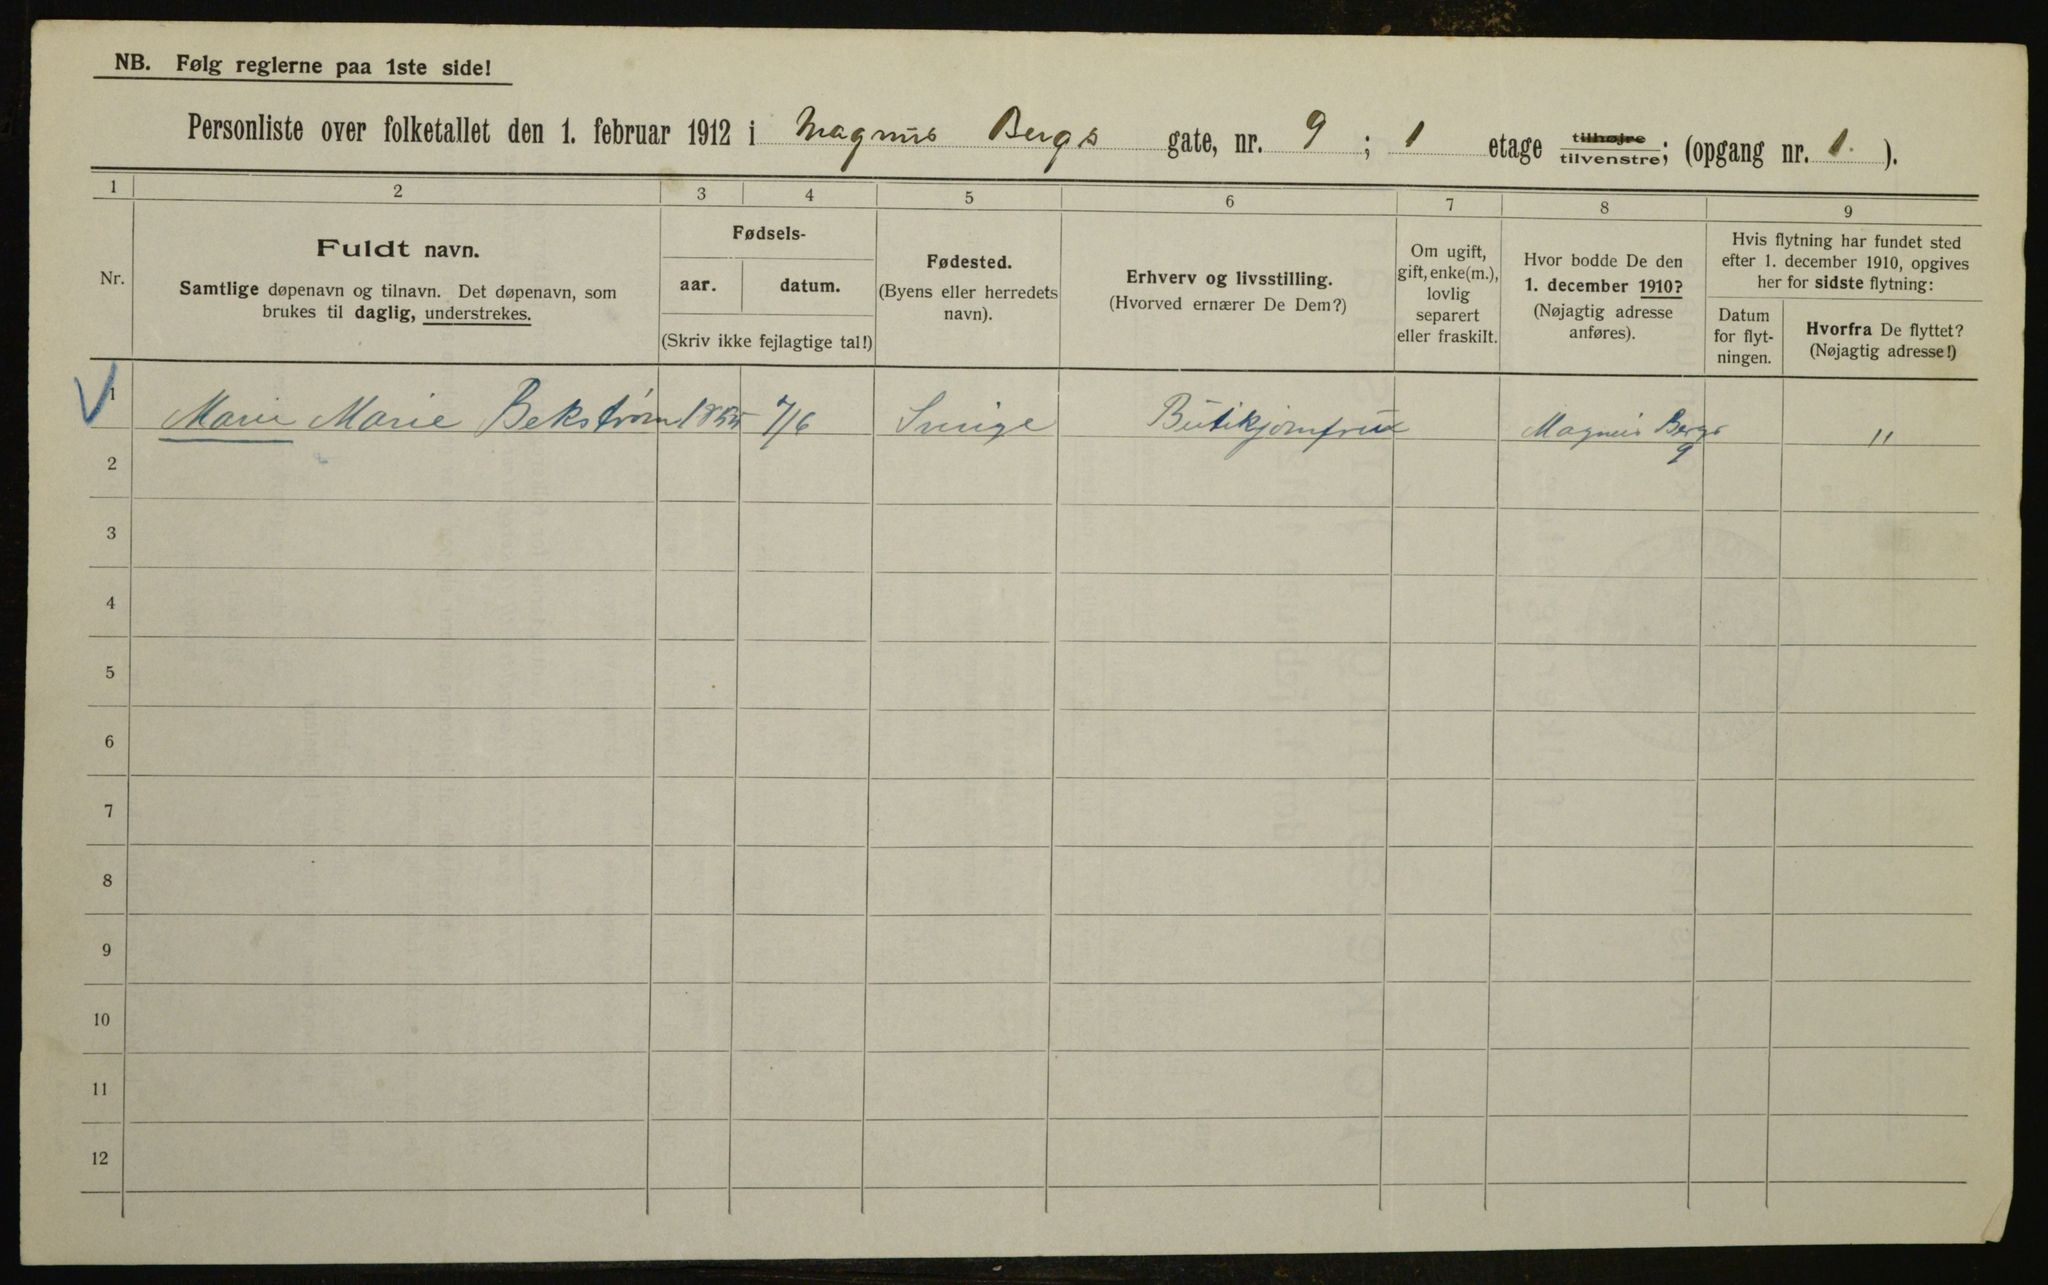 NB. Følg reglerne paa 1ste side!
Personliste over folketallet den 1. februar 1912 i Magnus Bergs gate, nr. 9 ; 1 etage tilhøjre tilvenstre; (opgang nr. 1. ).
1 2 3 4 5 6 7 8 9
Nr.
Fuldt navn.
Samtlige døpenavn og tilnavn. Det døpenavn, som
brukes til daglig, understrekes.
Fødsels-
aar. datum.
(Skriv ikke fejlagtige tal!)
Fødested.
(Byens eller herredets
navn).
Erhverv og livsstilling.
(Hvorved ernærer De Dem?)
Om ugift,
gift, enke(m.),
lovlig
separert
eller fraskilt.
Hvor bodde De den
1. december 1910?
(Nøjagtig adresse
anføres).
Hvis flytning har fundet sted
efter 1. december 1910, opgives
her for sidste flytning:
Datum
for flyt-
ningen.
Hvorfra De flyttet?
(Nøjagtig adresse!)
1 Marie Marie Bekstrøm 1855 7/6 Sverige Butikjomfru Magnus Bergs 9 "
2
3
4
5
6
7
8
9
10
11
12